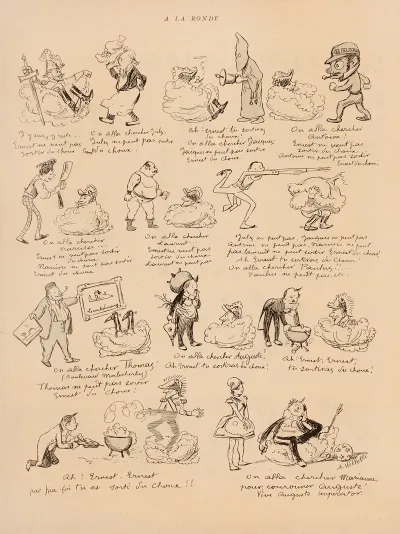 A LA RONDE
J'y suis, j'y reste...
Ernest ne veut pas
Sortir du choux
On alla chercher July,
July ne peut pas sortir
Ernest du choux.
Ah! Ernest tu sortiras
du choux!
On alla chercher Jacques
Jacques ne peut pas sortir
Ernest du choux
On alla chercher
Antoine
Ernest ne veut pas
Sortir du choux
Antoine ne peut pas sortir
Ernest du choux
On alla chercher
Narcisse
Ernest ne veut pas sortir
du choux
Narcisse ne peut pas sortir
Ernest du choux
On alla chercher
Laurent
Ernest ne veut pas
sortir du choux
Laurent ne peut pas
July ne peut pas, Jacques ne peut pas
Antoine ne peut pas, Narcisse ne peut
pas, Laurent ne peut sortir Ernest du choux
Ah Ernest tu sortiras du choux
On alla chercher Paulus!..
Paulus ne peut pas etc..
On alla chercher Thomas
(Boulevard Malesherbes)
Thomas ne peut pas sortir
Ernest du choux!
On alla chercher Auguste!
Ah Ernest tu sortiras du choux!
Ah! Ernest, Ernest,
tu sortiras du choux!
Ah! Ernest. Ernest
par foi tu es sorti du choux!!
On alla chercher Marianne
pour couronner Auguste!
Vive Auguste imperator.
A. Willette